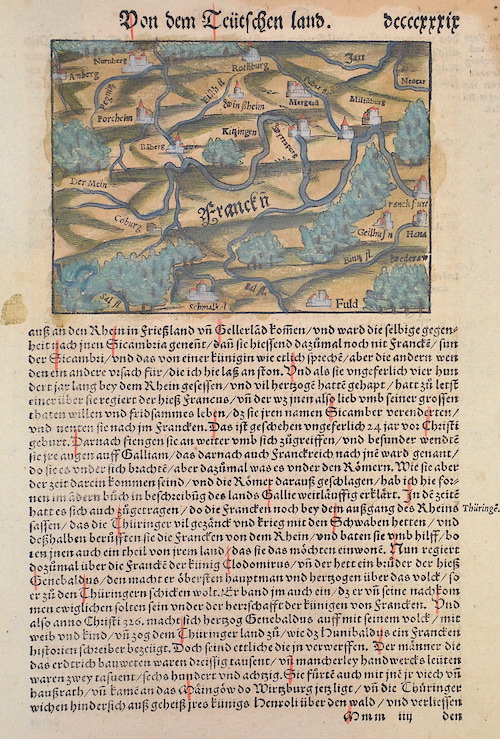 Von dem Teütschen land. dccccxxxix
Nurnberg
Rotnburg
Jaxt
Amberg
Neccer
Regnitz
Winsheim
Mergetā
Miltnburg
Forcheim
Kitzingen
Babērg
Der Mein
Coburg
Franckñ
Franckfurt
Geilhusn
Hana
Wederaw
Sal fl.
Sal fl.
Schmalkal
Fuld
auß an den Rhein in Frießland vñ Gellerlād kom̄en/vnd ward die selbige gegen-
heit nach jnen Sicambria genent/dañ sie hiessend dazůmal noch nit Francke/sun
der Sicambri/vnd das von einer künigin wie etlich sprechē/aber die andern wen
den ein andere vrsach für/die ich hie laß anston. Vnd als sie vngeferlich vier hun
dert jar lang bey dem Rhein gesessen/vnd vil hertzogē hattē gehapt/hatt zů letst
einer über sie regiert der hieß Francus/vñ der wz jnen also lieb vmb seiner grossen
thaten willen vnd fridsammes leben/dz sie jren namen Sicamber verendertē/
vnd nenten sie nach jm Francken. Das ist geschehen vngeferlich 24 jar vor Christi
geburt. Darnach fiengen sie an weiter vmb sich zůgreiffen/vnd besunder wendtē
sie jre augen auff Galliam/das darnach auch Franckreich nach jnē ward genant/
do sie es vnder sich brachtē/aber dazůmal was es vnder den Römern. Wie sie aber
der zeit darein kommen seind/vnd die Römer darauß geschlagen/hab ich hie for-
nen im andern bůch in beschreibūg des lands Gallie weitläuffig erklärt. In dē zeitē
hatt es sich auch zůgetragen/do die Francken noch bey den außgang des Rheins
Thüringē.
sassen/das die Thüringer vil gezänck vnd krieg mit den Schwaben hetten/vnd
deßhalben berůfften sie die Francken von dem Rhein/vnd baten sie vmb hilff/bo
ten jnen auch ein theil von jrem land/das sie das möchten einwonē. Nun regiert
dozůmal über die Franckē der künig Clodomirus/vñ der hett ein brůder der hieß
Genebaldus/den macht er öbersten hauptman vnd hertzogen über das volck/so
er zů den Thüringern schicken wolt. Er band jm auch ein/dz er vñ seine nachkom
men ewiglichen solten sein vnder der herschafft der künigen von Francken. Vnd
also anno Christi 326. macht sich hertzog Genebaldus auff mit seinem volck/mit
weib vnd kind/vñ zog dem Thüringer land zů/wie dz Hunibaldus ein Francken
historien schreiber bezeügt. Doch seind ettliche die jn verwerffen. Der männer die
das erdtrich bauweten waren dreissig tausent/vñ mancherley handwercks leüten
waren zwey tausent/sechs hundert vnd achtzig. Sie fürtē auch mit jnē jr viech vñ
haußrath/vñ kamē an das Mäingöw do Wirtzburg jetz ligt/vñ die Thüringer
wichen hindersich auß geheiß jres künigs Henroli über den wald/vnd verliessen
Mmm iiij den